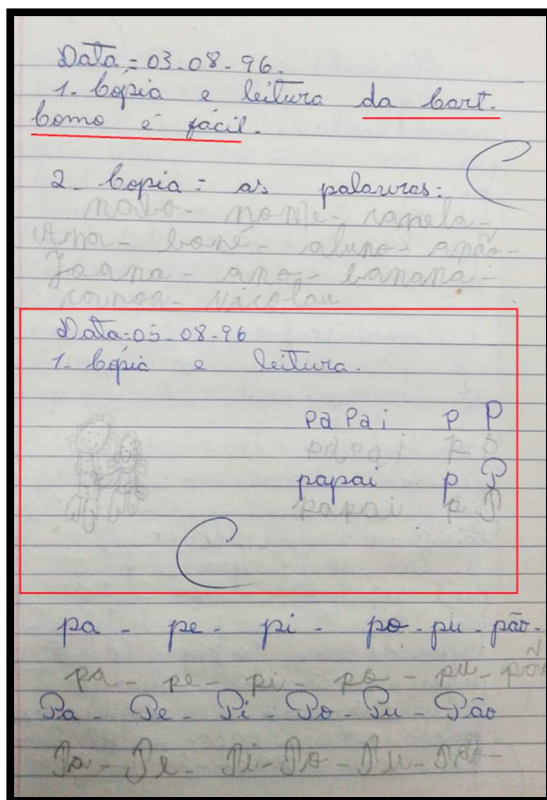 Data: 03-08-96.
1- Cópia e leitura da Cart.
Como é fácil.
C
2- Copia: as palavras:
nabo - nome - canela -
Ana - boné - aluno - anão -
Joana - ano - banana -
canoa - Nicolau
Data: 05-08-96
1- Cópia e leitura.
paPai p P
papai p p
papai p P
papai p P
C
pa - pe - pi - po - pu - pão -
pa - pe - pi - po - pu - pão
Pa - Pe - Pi - Po - Pu - Pão
Pa - Pe - Pi - Po - Pu - Pão -